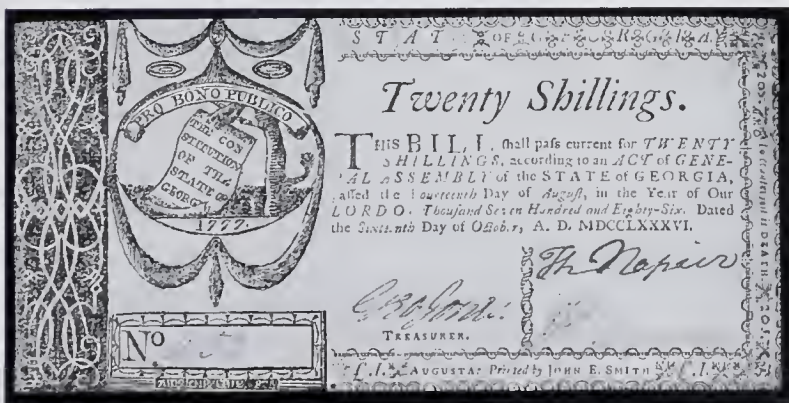 STATE OF GEORGIA
PRO BONO PUBLICO
THE CON
STITUTION
OF THE
STATE OF
GEORGIA
1777.
No
Twenty Shillings.
THIS BILL shall pass current for TWENTY
SHILLINGS, according to an ACT of GENE-
RAL ASSEMBLY of the STATE of GEORGIA,
passed the Fourteenth Day of August, in the Year of Our
LORD O. Thousand Seven Hundred and Eighty-Six. Dated
the Sixteenth Day of October, A. D. MDCCLXXXVI.
Th Napier
TREASURER.
£.1. AUGUSTA: Printed by JOHN E. SMITH £.1.
20s. to counterfeit is DEATH. 20s.